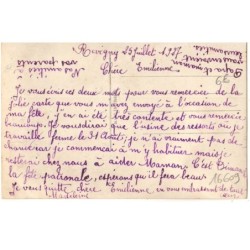 Revigny 23 Juillet 1927
Chère Emilienne
Je vous écris ces deux mots pour vous remercier de la
jolie carte que vous m'avez envoyé à l'occasion de
ma fête, j'en ai été très contente et vous remercie
beaucoup. Je vous dirai que l'usine des ressorts où je
travaille ferme le 31 Août, je n'ai vraiment pas de
chance car je commençais à m'y habituer mais je
resterai chez nous à aider Maman. C'est Dimanche
la fête patronale, espérons qu'il fera beau.
Je vous quitte chère Emilienne en vous embrassant de
Madeleine